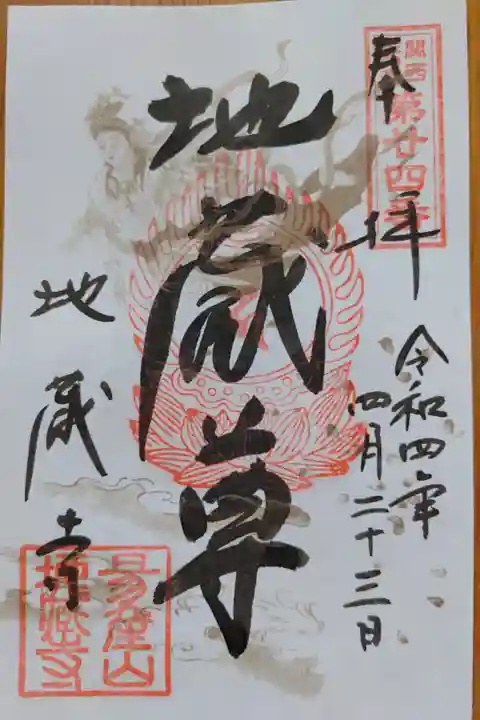 関西
第廿四番
奉拝
令和四年
四月二十三日
地蔵尊
地蔵寺